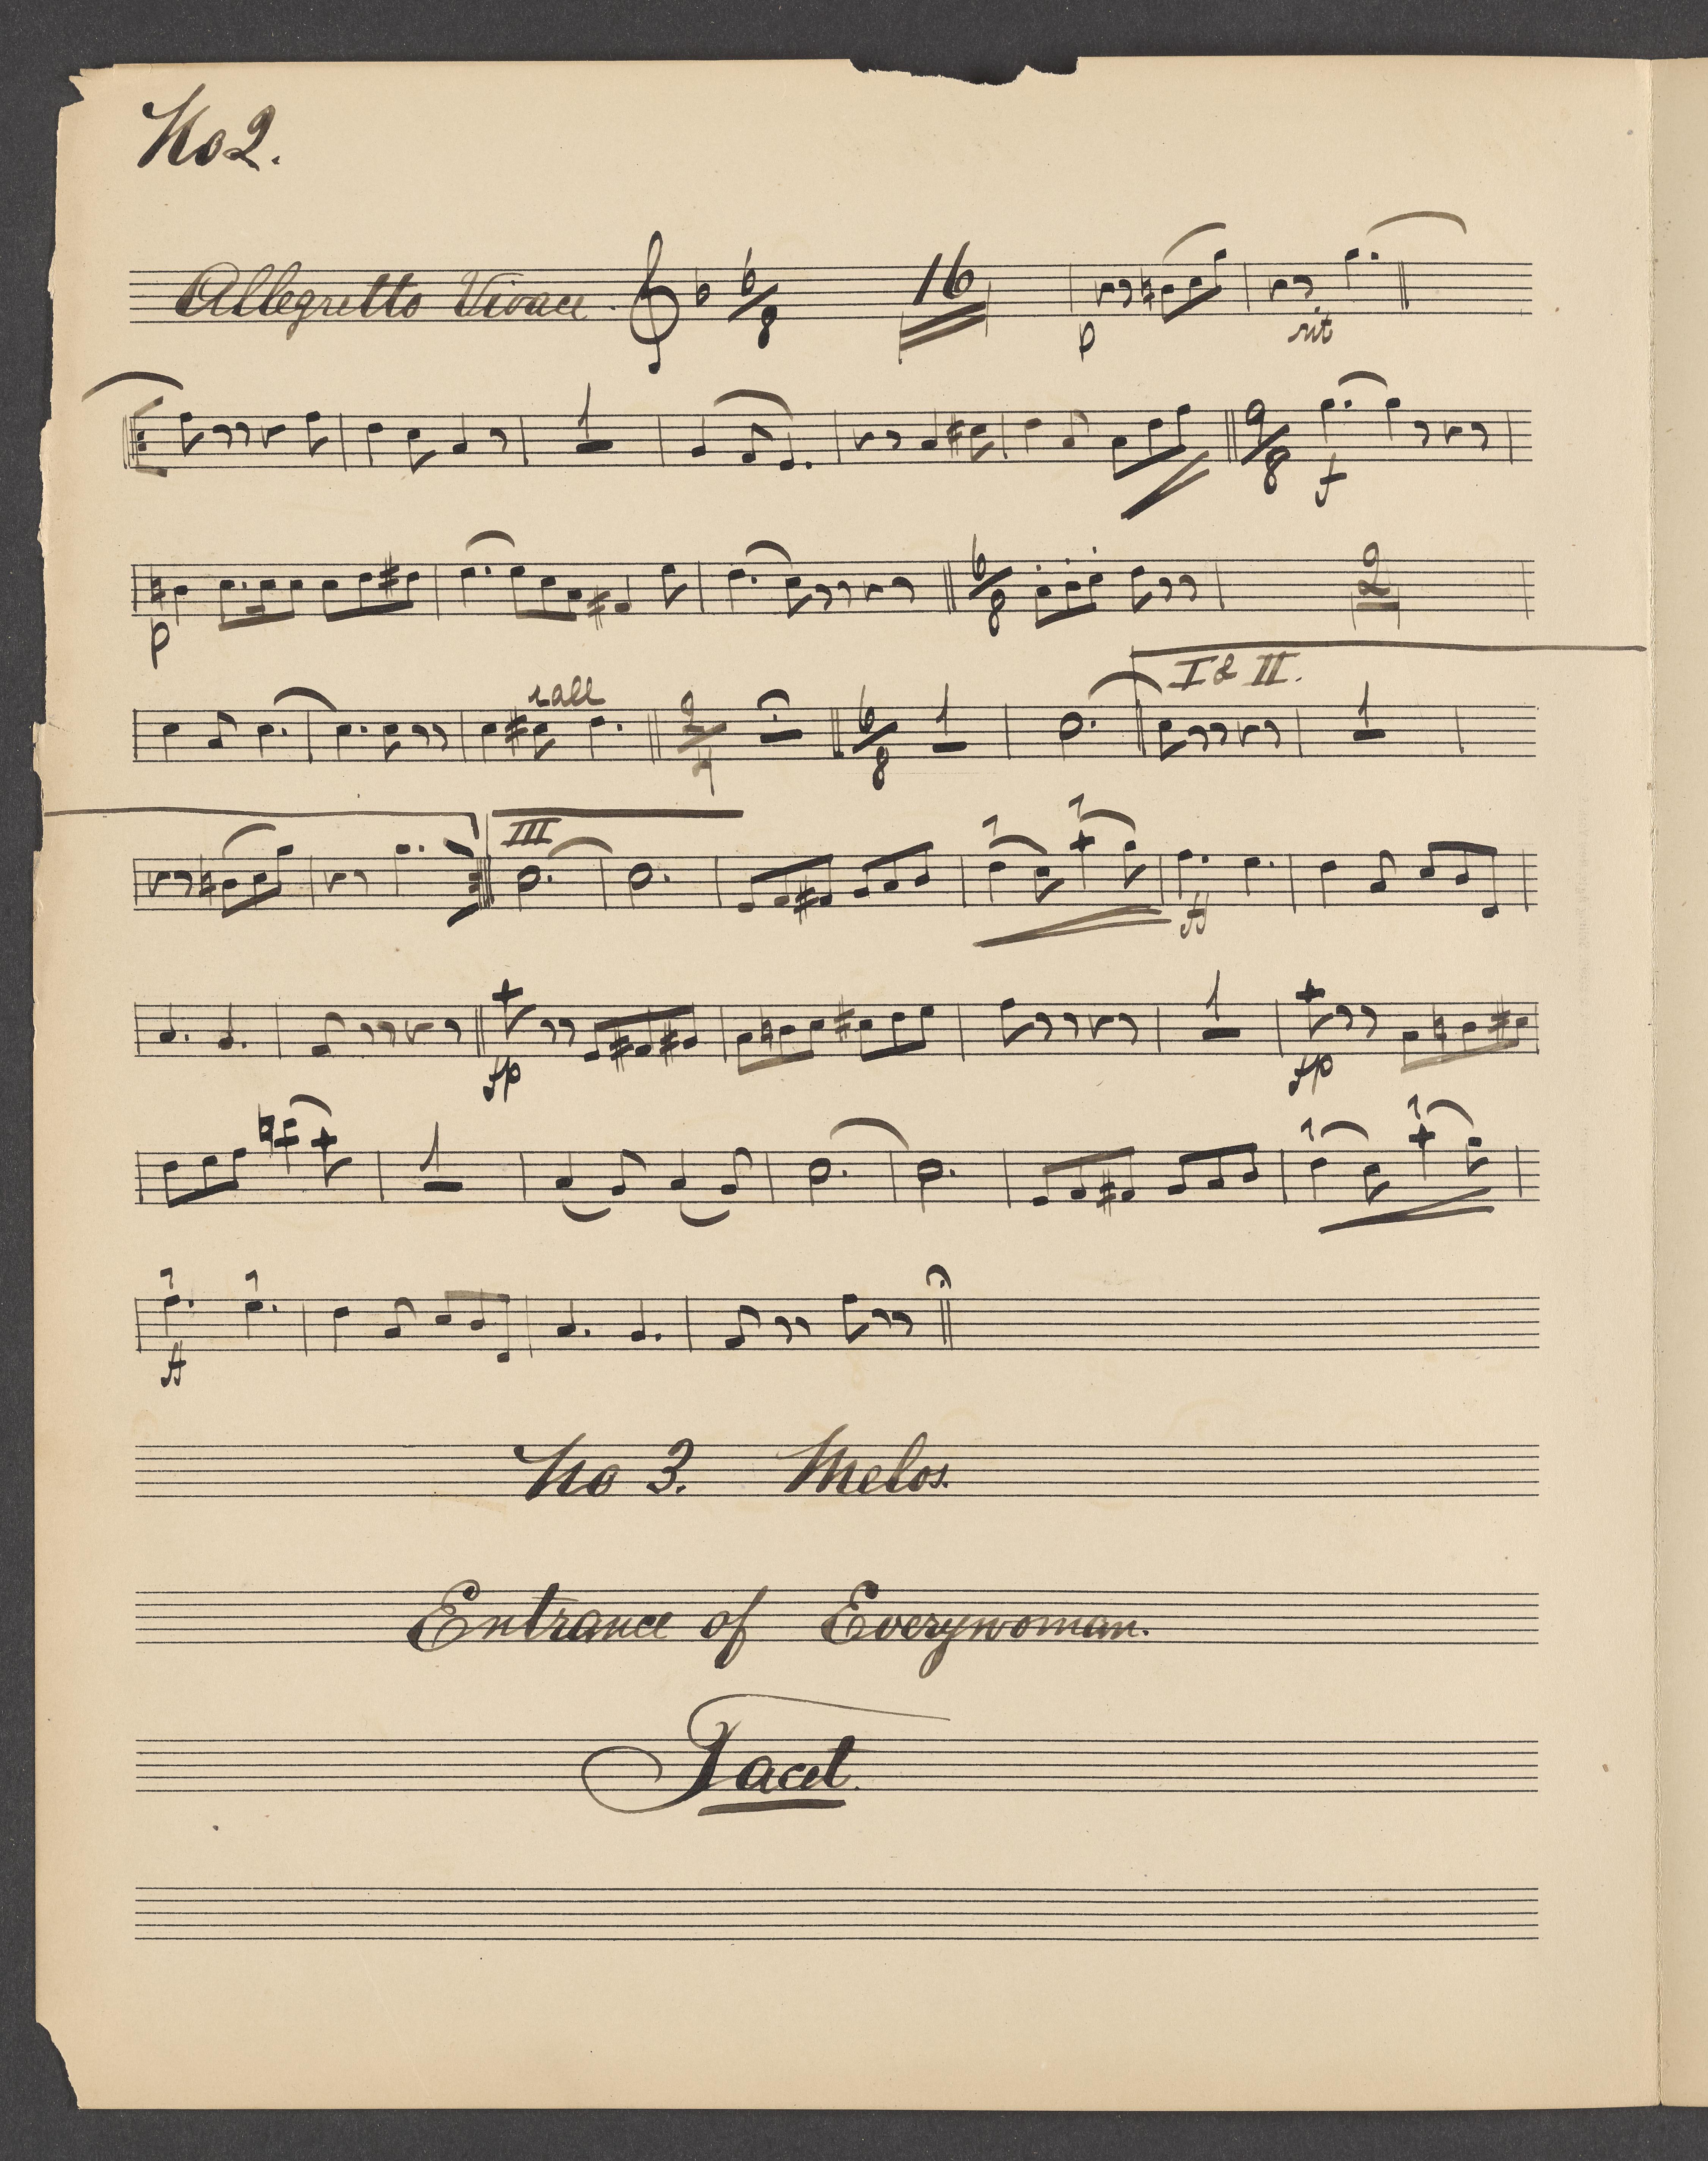 No 2.
Allegretto Vivace. 6/8 16
p rit
1 9/8 f
p 6/8 2
rall 2/4 6/8 1 I & II. 1
III ff
fp 1 fp
1
ff
No 3. Melos.
Entrance of Everywoman.
Tacet.